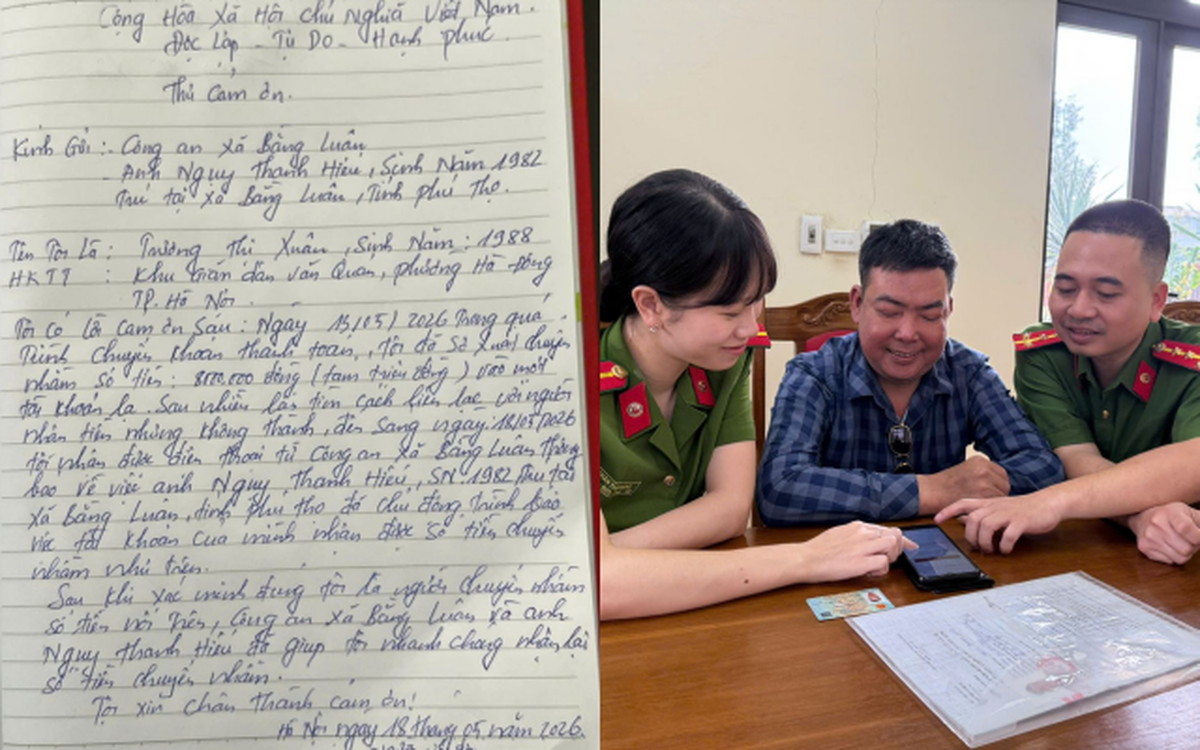 Cộng Hòa Xã Hội Chủ Nghĩa Việt Nam.
Độc Lập - Tự Do - Hạnh phúc.
Thư Cảm ơn.
Kính Gửi :- Công an xã Bằng Luân
- Anh Ngụy Thanh Hiếu, Sinh Năm 1982
Trú tại xã Bằng Luân, Tỉnh phú Thọ.
Tên Tôi Là : Trương Thị Xuân, Sinh Năm : 1988
HKTT : Khu giãn dân Văn Quán, phường Hà Đông
TP. Hà Nội.
Tôi có lời cảm ơn sau : Ngày 15/05/2026 Trong quá
Trình chuyển khoản thanh toán, Tôi đã sơ xuất chuyển
nhầm số tiền : 8000.000 đồng (tám triệu đồng) vào một
tài khoản lạ. Sau nhiều lần tìm cách liên lạc với người
nhận tiền nhưng không thành, đến sáng ngày 18/05/2026
tôi nhận được điện thoại từ Công an xã Bằng Luân Thông
báo về việc anh Ngụy Thanh Hiếu, SN 1982 Trú tại
xã Bằng Luân, tỉnh phú thọ đã chủ động Trình báo
việc tài khoản của mình nhận được số tiền chuyển
nhầm như trên.
Sau khi xác minh đúng tôi là người chuyển nhầm
số tiền nói Trên, Công an xã Bằng Luân và anh
Ngụy Thanh Hiếu đã giúp tôi nhanh chóng nhận lại
số tiền chuyển nhầm.
Tôi xin chân thành cảm ơn!
Hà Nội ngày 18 tháng 05 năm 2026.